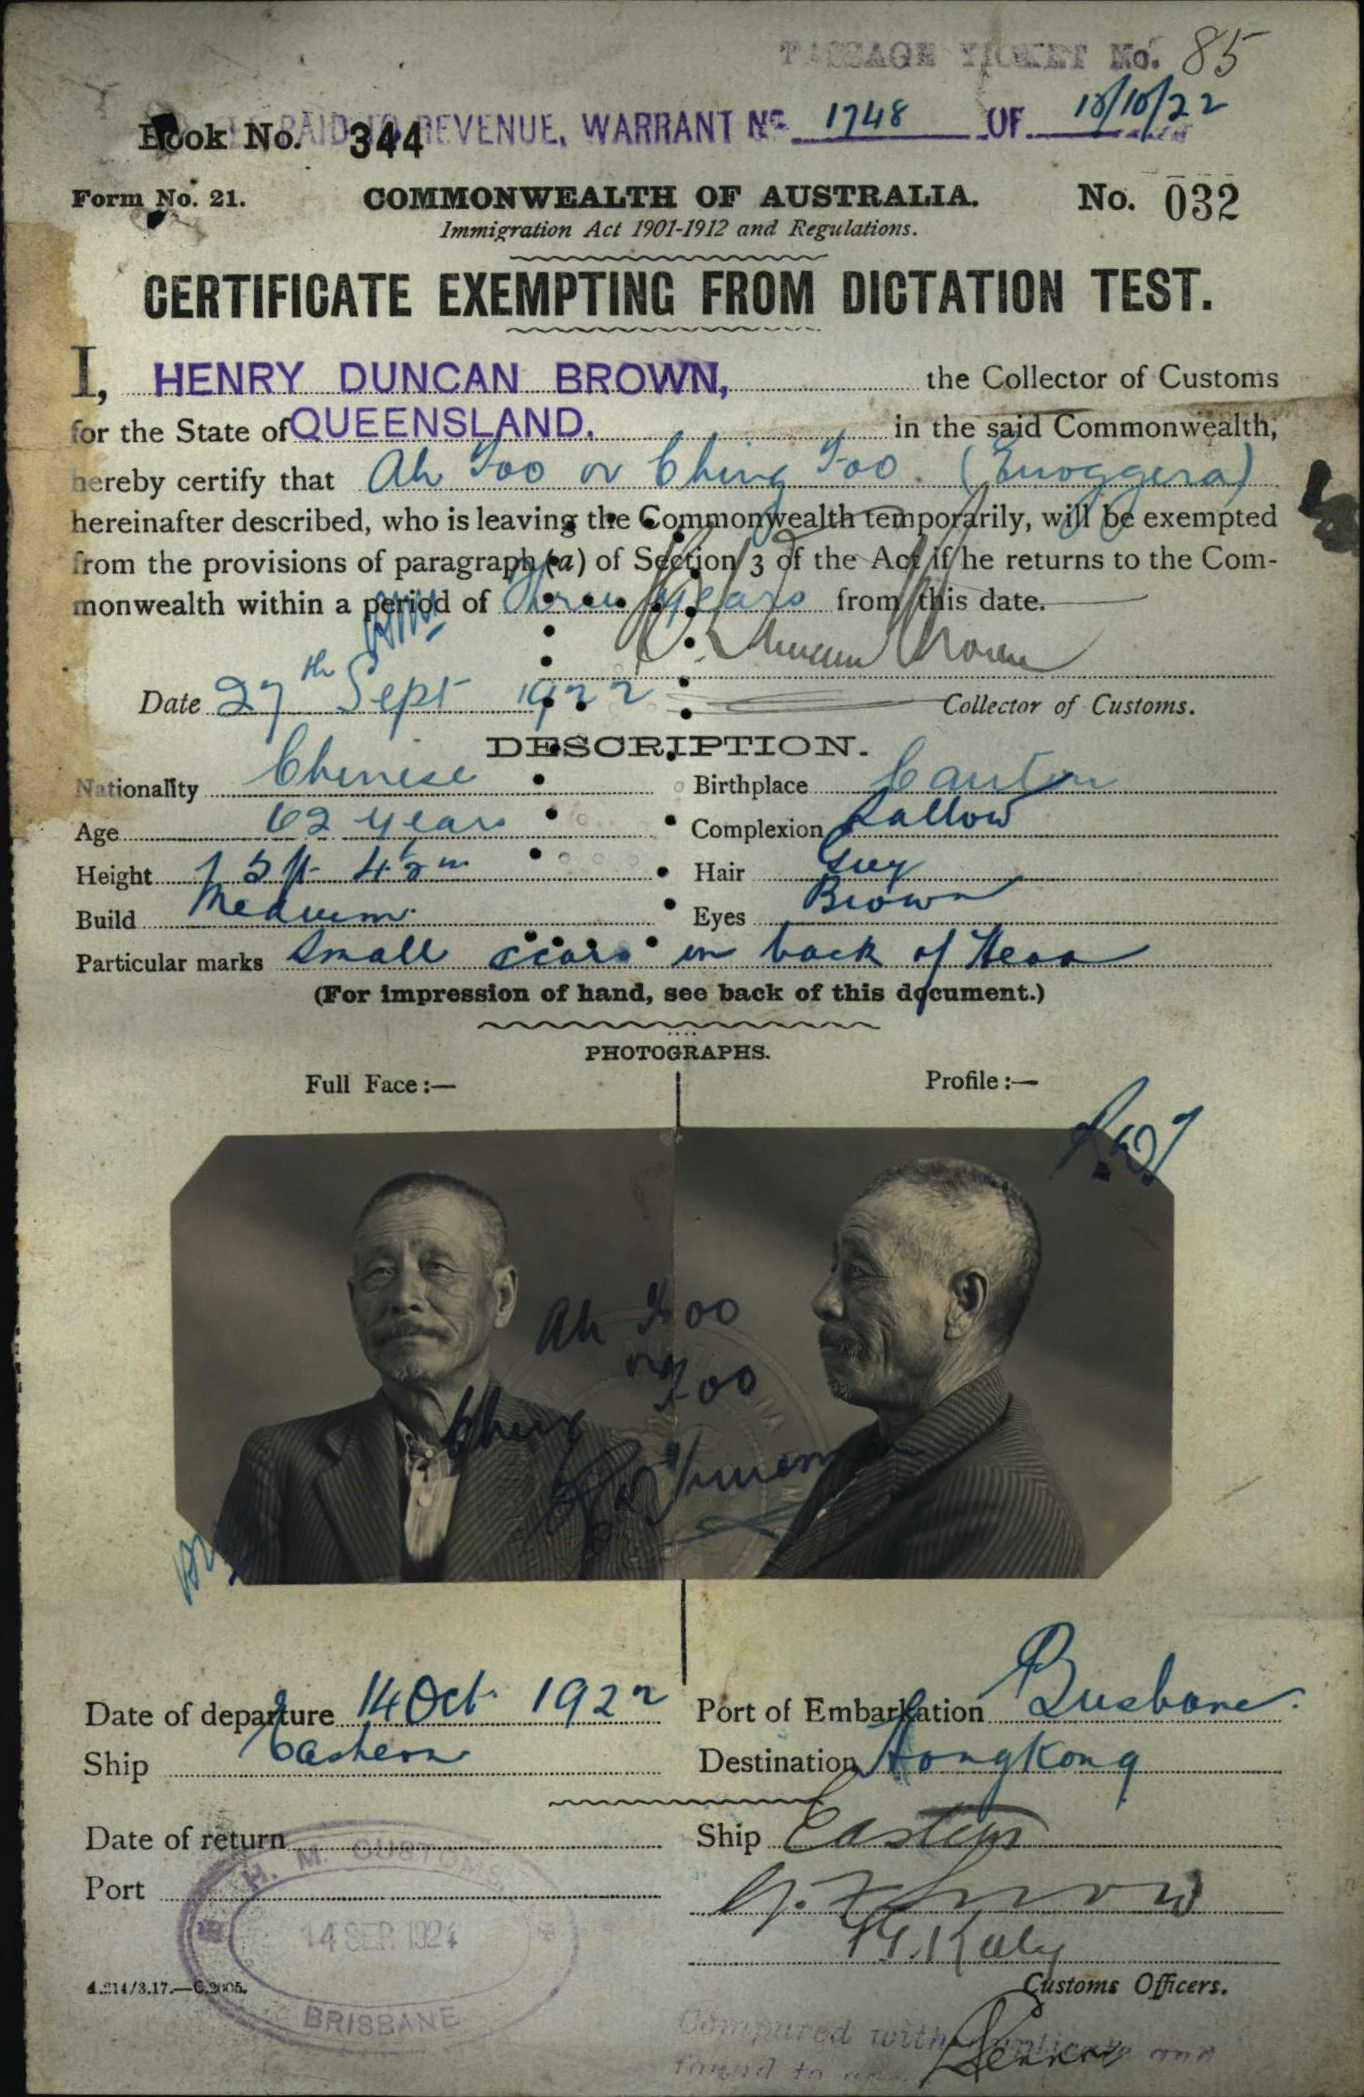 PASSAGE TICKET No. 85
PAID TO REVENUE, WARRANT No 1748 OF 10/10/22
Book No. 344
Form No. 21. COMMONWEALTH OF AUSTRALIA. No. 032
Immigration Act 1901-1912 and Regulations.
CERTIFICATE EXEMPTING FROM DICTATION TEST.
I, HENRY DUNCAN BROWN, the Collector of Customs
for the State of QUEENSLAND. in the said Commonwealth,
hereby certify that Ah Foo or Ching Foo. (Enoggera)
hereinafter described, who is leaving the Commonwealth temporarily, will be exempted
from the provisions of paragraph (a) of Section 3 of the Act if he returns to the Com-
monwealth within a period of Three years from this date.
H. Duncan Brown
Date 27th Sept 1922 Collector of Customs.
DESCRIPTION.
Nationality Chinese Birthplace Canton
Age 62 years Complexion Sallow
Height 5 ft 4½ in Hair Grey
Build Medium Eyes Brown
Particular marks Small scars on back of Head
(For impression of hand, see back of this document.)
PHOTOGRAPHS.
Full Face:— Profile:—
Ah Foo
or
Foo
Date of departure 14 Oct 1922 Port of Embarkation Brisbane.
Ship Eastern Destination Hongkong
Date of return Ship Eastern
Port
H. M. CUSTOMS
14 SEP 1924
BRISBANE
Customs Officers.
Compared with duplicate and
found to